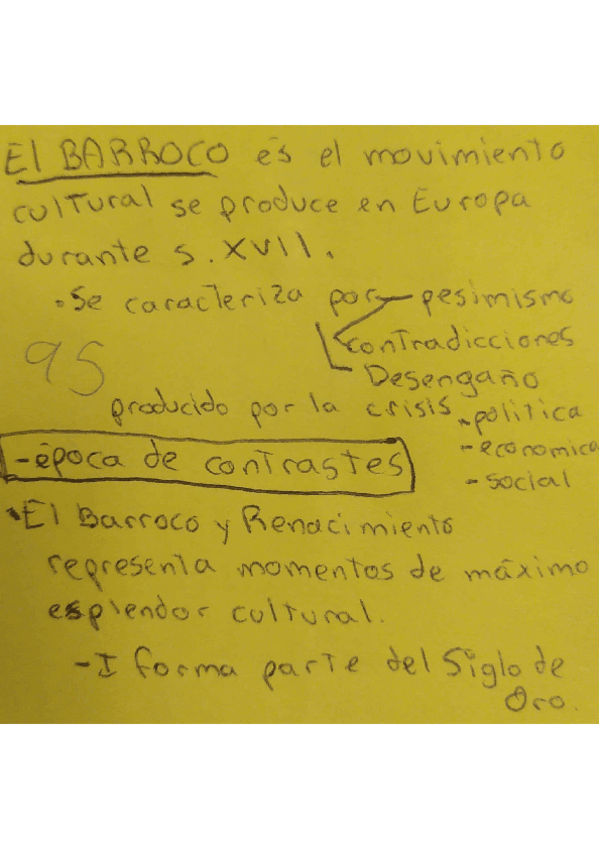 El BARROCO es el movimiento
cultural se produce en Europa
durante s. XVII.
• Se caracteriza por pesimismo
contradicciones
Desengaño
95
producido por la crisis - politica
- economica
- social
- época de contrastes
• El Barroco y Renacimiento
representa momentos de máximo
esplendor cultural.
- I forma parte del Siglo de
Oro.